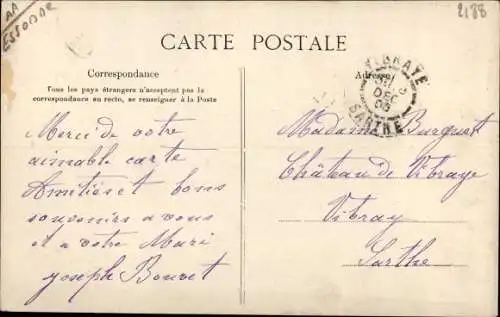 AA
ESSONNE
2188
CARTE POSTALE
Correspondance
Tous les pays étrangers n'acceptent pas la
correspondance au recto, se renseigner à la Poste
Merci de votre
aimable carte
Amitiés et bons
souvenirs a vous
et a votre Mari
Joseph Bouvet
Adresse
VIBRAYE
DEC
SARTHE
Madame Burguet
Château de Vibraye
Vibray
Sarthe